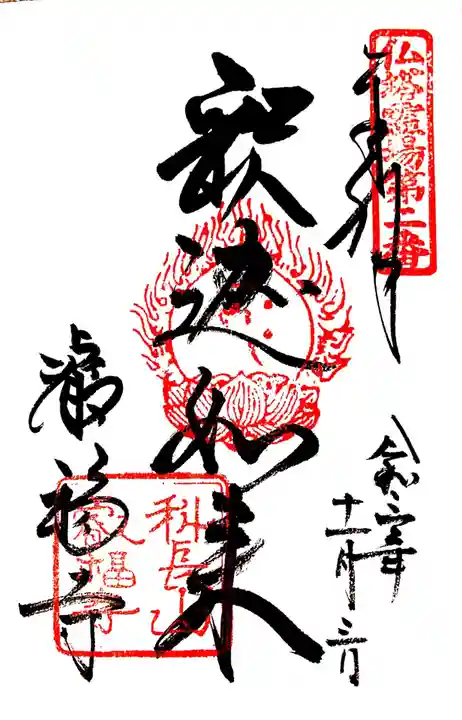 仏塔霊場第二番
奉拝
釈迦如来
令和二年
十一月三日
福寺
科長山
叡福寺